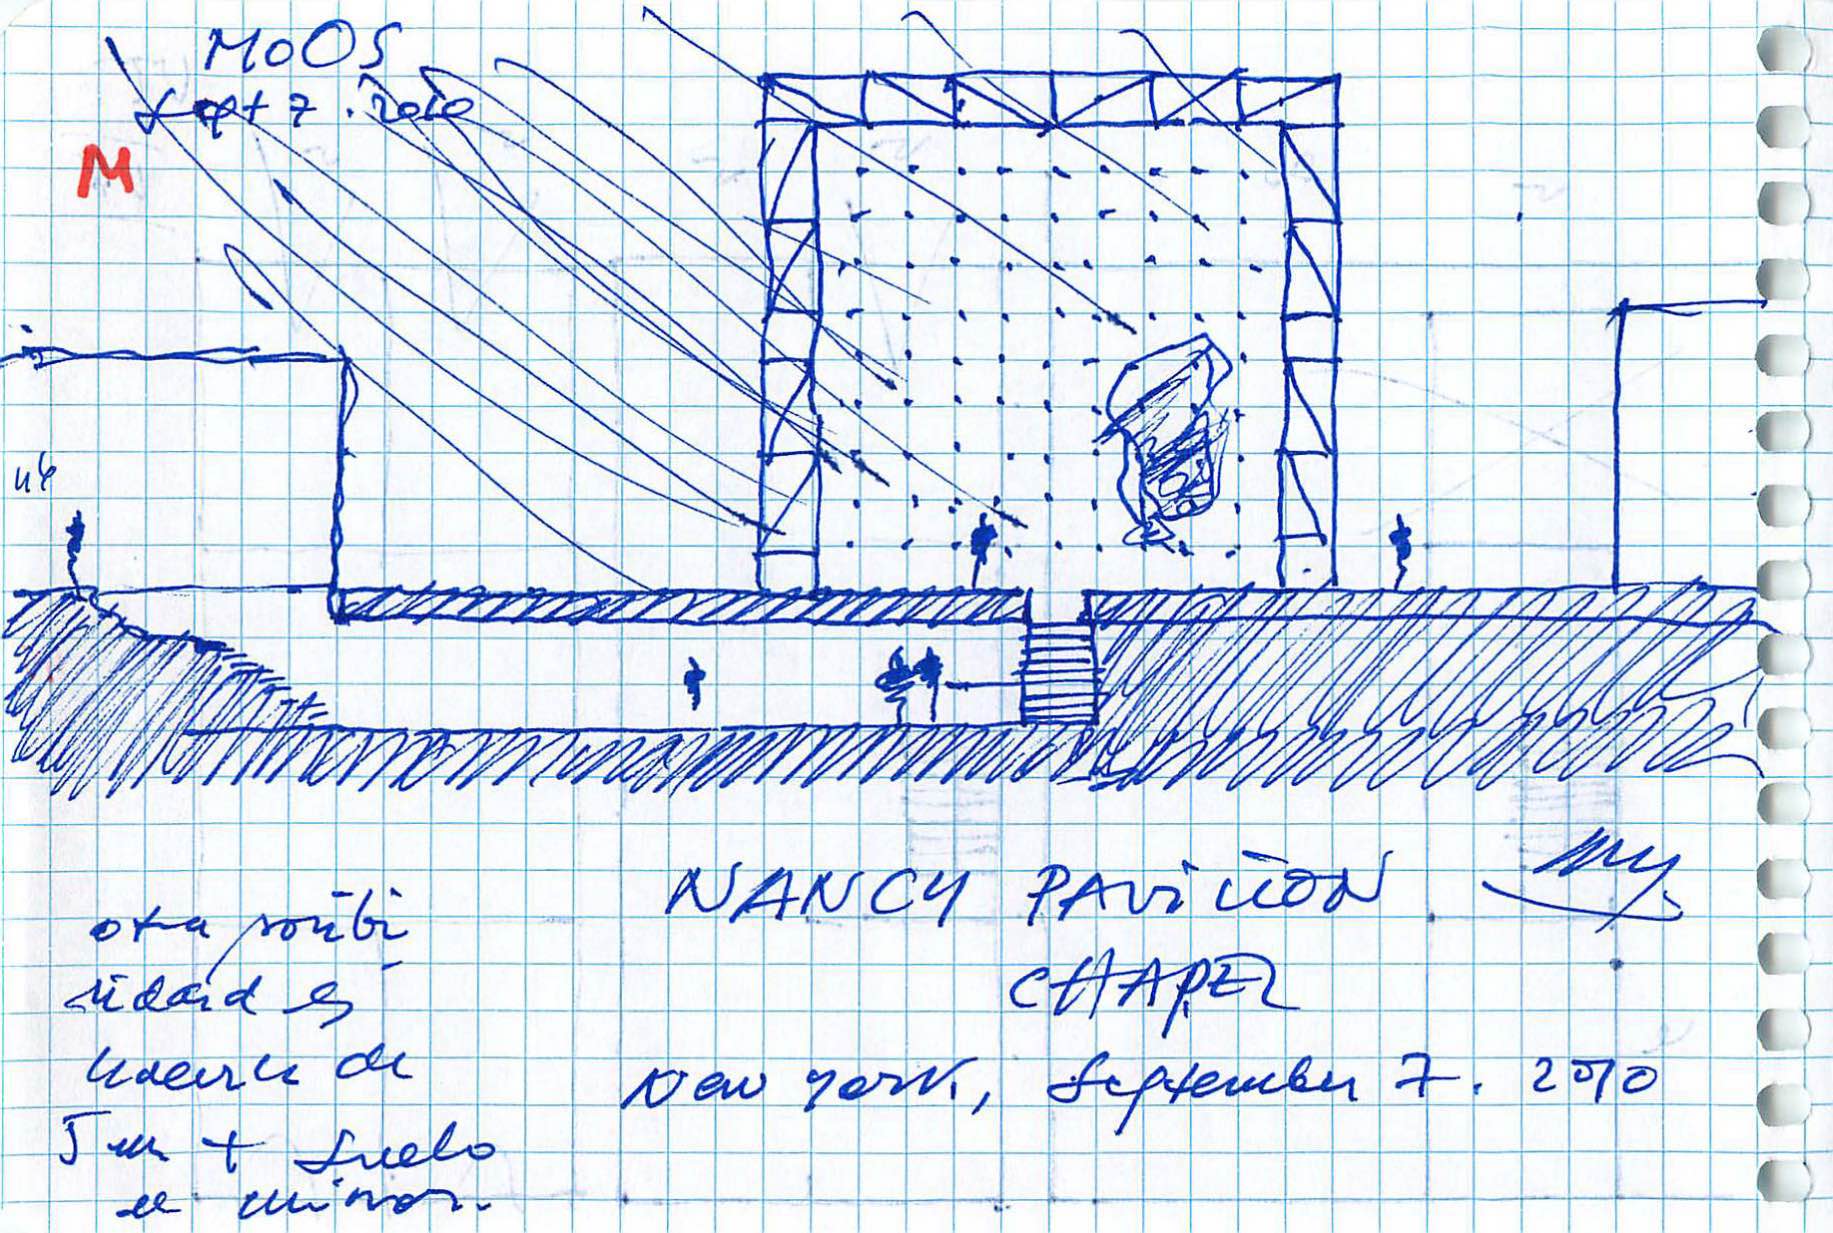 MoOS
Sept 7. 2010
M
NANCY PAVILION
CHAPEL
New York, September 7. 2010
otra posibi
lidad es
hacerle de
5 m + suelo
mirror.